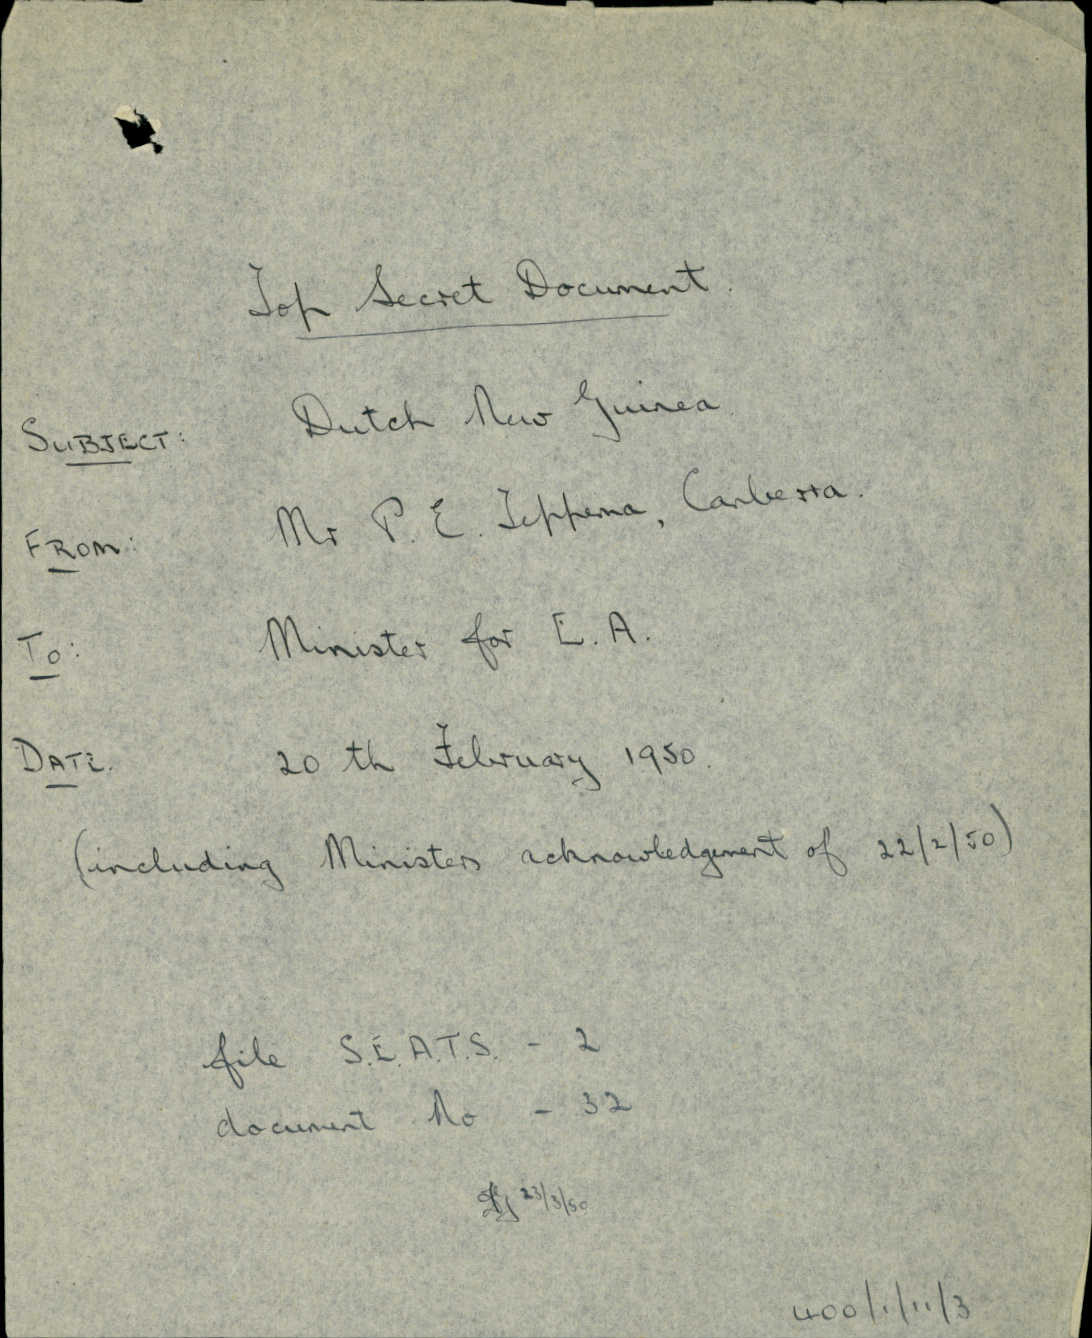 Top Secret Document.
SUBJECT: Dutch New Guinea
FROM: Mr P. E. Teppema, Canberra.
To: Minister for E. A.
DATE. 20 th February 1950.
(including Ministers acknowledgement of 22/2/50)
file S.E.A.T.S. - 2
document No - 32
23/3/50
400/1/11/3